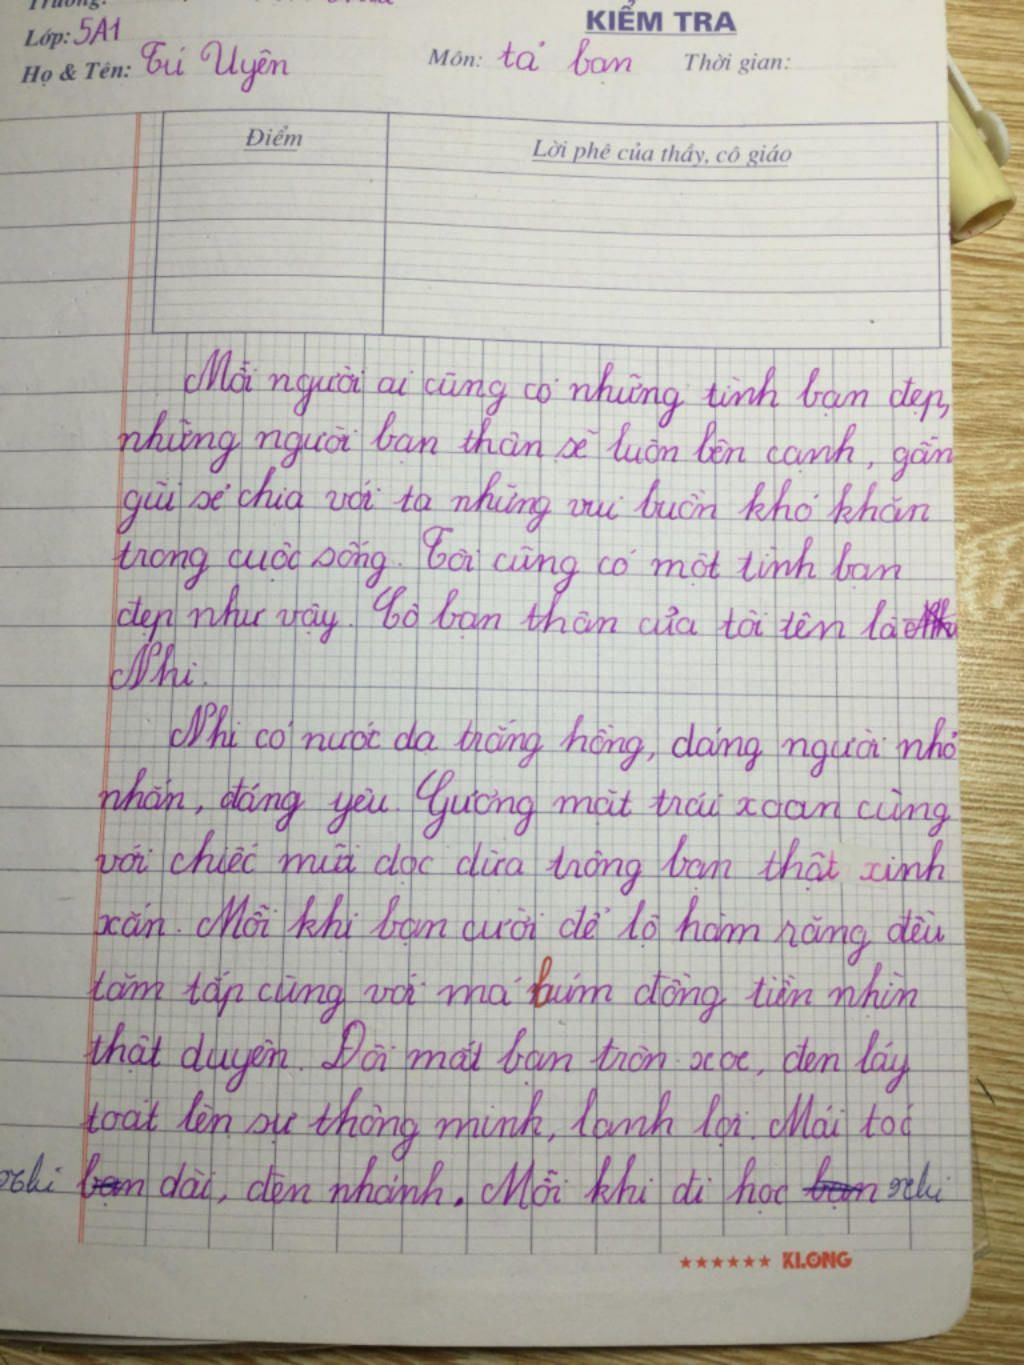 Trường:
KIỂM TRA
Lớp: 5A1
Họ & Tên: Tú Uyên Môn: tả bạn Thời gian:
Điểm Lời phê của thầy, cô giáo
Mỗi người ai cũng có những tình bạn đẹp,
những người bạn thân sẽ luôn bên cạnh, gần
gũi sẻ chia với ta những vui buồn khó khăn
trong cuộc sống. Tôi cũng có một tình bạn
đẹp như vậy. Cô bạn thân của tôi tên là
Nhi.
Nhi có nước da trắng hồng, dáng người nhỏ
nhắn, đáng yêu. Gương mặt trái xoan cùng
với chiếc mũi dọc dừa trông bạn thật xinh
xắn. Mỗi khi bạn cười để lộ hàm răng đều
tăm tắp cùng với má búm đồng tiền nhìn
thật duyên. Đôi mắt bạn tròn xoe, đen láy
toát lên sự thông minh, lanh lợi. Mái tóc
nhi bạn dài, đen nhánh. Mỗi khi đi học bạn nhi
KLONG